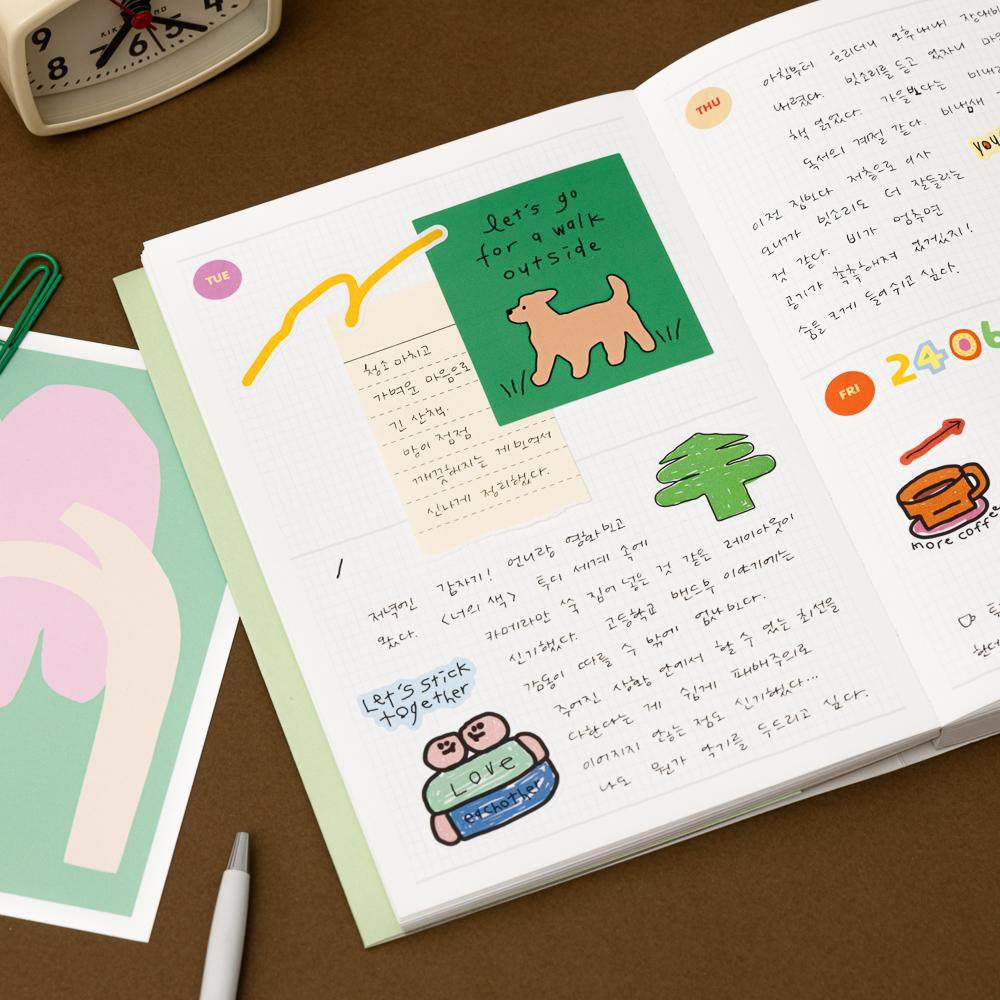 9
8
7
6
5
TUE
let's go
for a walk
outside
청소 마치고
가벼운 마음으로
긴 산책.
맘이 점점
깨끗해지는 게 보여서
신나게 정리했다.
저녁엔 갑자기! 언니랑 영화 보고
왔다. <너의 색> 투디 세계 속에
카메라만 쏙 집어 넣은 것 같은 레이아웃이
신기했다. 고등학교 밴드부 이야기에는
감동이 따를 수 밖에 없나 보다.
주어진 상황 안에서 할 수 있는 최선을
다한다는 게 쉽게 패배주의로
이어지지 않는 점도 신기했다...
나도 뭔가 악기를 두드리고 싶다.
Let's stick
together
LOVE
eachother
THU
아침부터 흐리더니 오후 내내
내렸다. 빗소리를 듣고 있자니
책 읽었다. 가을보다는
독서의 계절 같다. 비냄새
you
이전 집보다 저층으로 이사
오니까 빗소리도 더 잘 들리는
것 같다. 비가 멈추면
공기가 촉촉해져 있겠지!
숨을 크게 들이쉬고 싶다.
FRI
2406
more coffee
한더